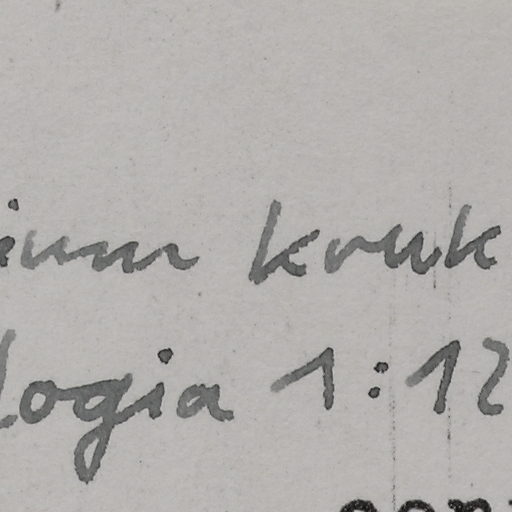 ium kruk
logia 1:12